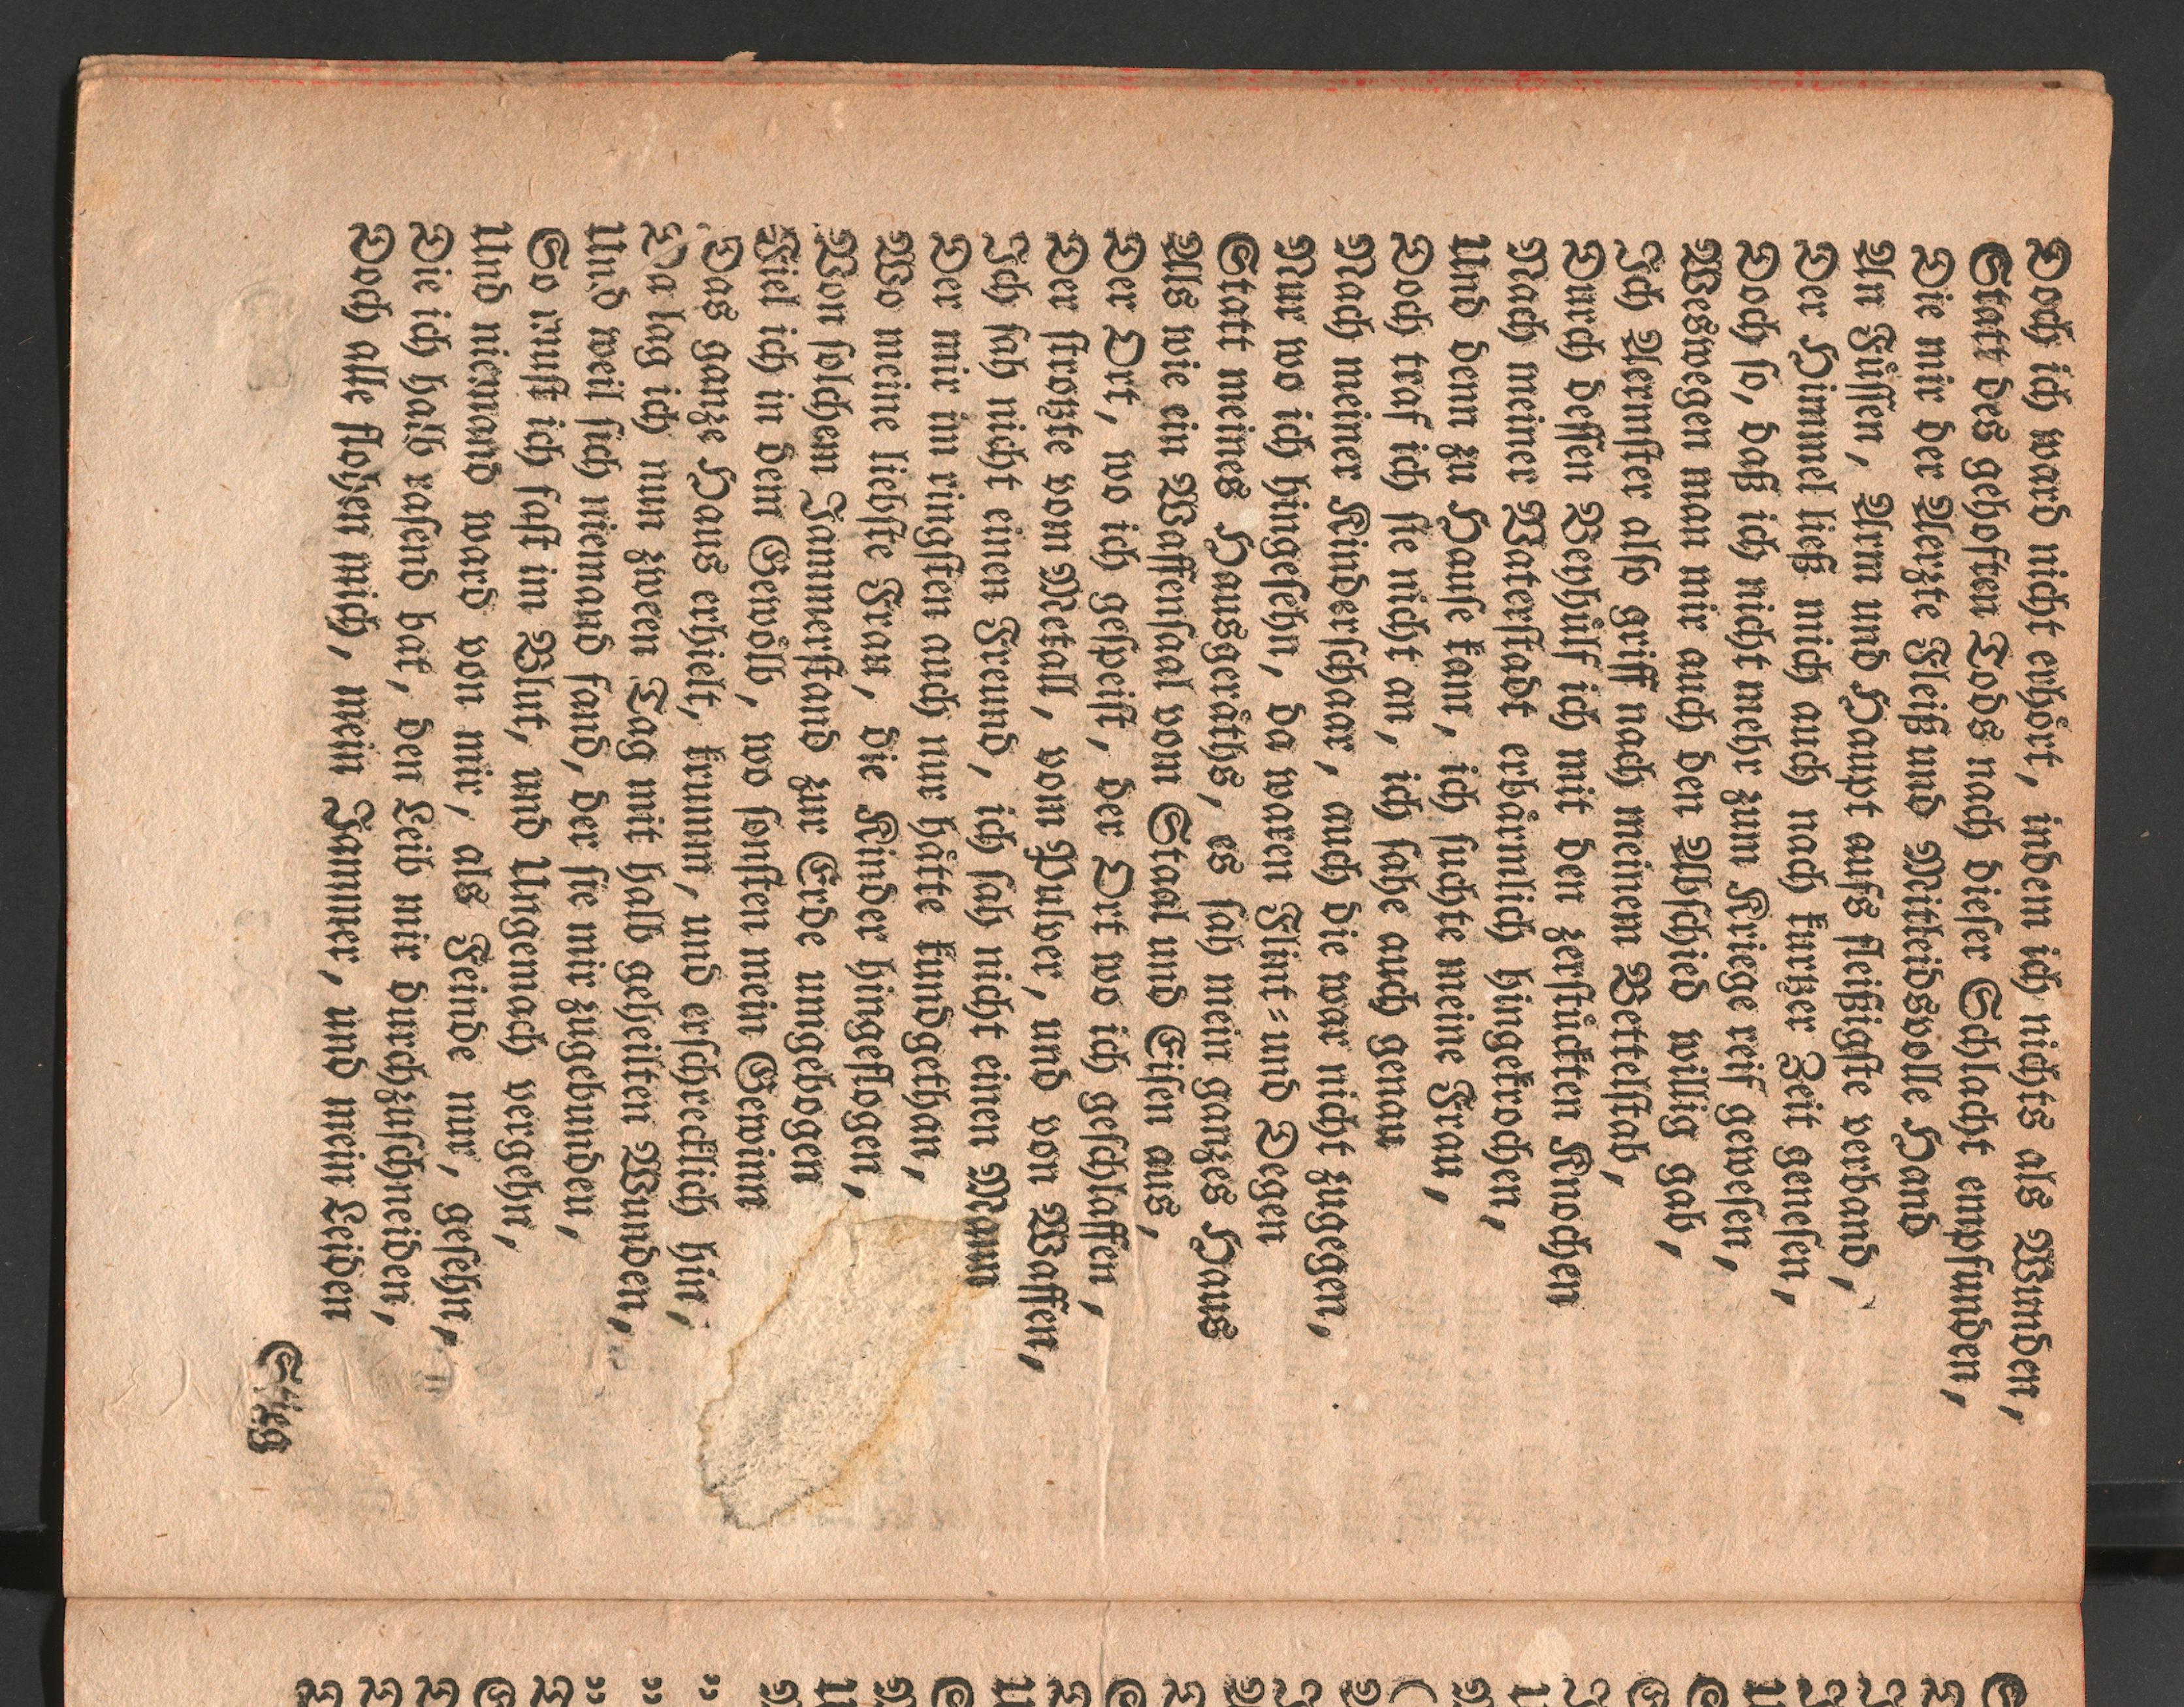 Doch ich ward nicht erhört, indem ich nichts als Wunden,
Statt des gehoften Tods nach dieser Schlacht empfunden,
Die mir der Aerzte Fleiß und Mitleidsvolle Hand
An Füssen, Arm und Haupt aufs fleißigste verband,
Der Himmel ließ mich auch nach kurtzer Zeit genesen,
Doch so, daß ich nicht mehr zum Kriege reif gewesen,
Weswegen man mir auch den Abschied willig gab,
Ich Aermster also griff nach meinem Bettelstab,
Durch dessen Beyhülf ich mit den zerstückten Knochen
Nach meiner Vaterstadt erbärmlich hingekrochen,
Und denn zu Hause kam, ich suchte meine Frau,
Doch traf ich sie nicht an, ich sahe auch genau
Nach meiner Kinderschaar, auch die war nicht zugegen,
Nur wo ich hingesehn, da waren Flint- und Degen
Statt meines Hausgeräths, es sah mein ganzes Haus
Als wie ein Waffensaal von Staal und Eisen aus,
Der Ort, wo ich gespeist, der Ort wo ich geschlaffen,
Der strotzte vom Metall, vom Pulver, und von Waffen,
Ich sah nicht einen Freund, ich sah nicht einen Mann
Der mir im ringsten auch nur hätte kundgethan,
Wo meine liebste Frau, die Kinder hingeflogen,
Von solchem Jammerstand zur Erde umgebogen
Fiel ich in dem Gewölb, wo sonsten mein Gewinn
Das ganze Haus erhielt, krumm, und erschrecklich hin;
Da lag ich nun zween Tag mit halb geheilten Wunden,
Und weil sich niemand fand, der sie mir zugebunden,
So must ich fast im Blut, und Ungemach vergehn,
Und niemand ward von mir, als Feinde nur, gesehn,
Die ich halb rasend bat, den Leib mir durchzuschneiden,
Doch alle flohen mich, mein Jammer, und mein Leiden